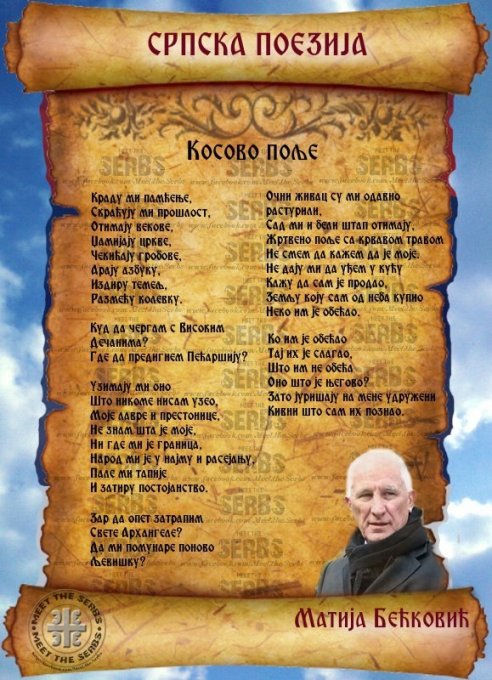 СРПСКА ПОЕЗИЈА
Косово поље
Краду ми памћење,
Скраћују ми прошлост,
Отимају векове,
Џамијају цркве,
Чекићају гробове,
Арају азбуку,
Издиру темељ,
Размећу колевку.
Куд да чергам с Високим
Дечанима?
Где да предигнем Пећаршију?
Узимају ми оно
Што никоме нисам узео,
Моје лавре и престонице,
Не знам шта је моје,
Ни где ми је граница,
Народ ми је у најму и расејању,
Пале ми тапије
И затиру постојанство.
Зар да опет затрапим
Свете Архангеле?
Да ми помунаре поново
Љевишку?
Очни живац су ми одавно
растурили,
Сад ми и бели штап отимају,
Жртвено поље са крвавом травом
Не смем да кажем да је моје.
Не дају ми да уђем у кућу
Кажу да сам је продао,
Земљу коју сам од неба купио
Неко им је обећао.
Ко им је обећао
Тај их је слагао,
Што им не обећа
Оно што је његово?
Зато јуришају на мене удружени
Кивни што сам их познао.
Матија Бећковић
MEET THE SERBS
MEET THE SERBS
www.facebook.com/MeettheSerbs